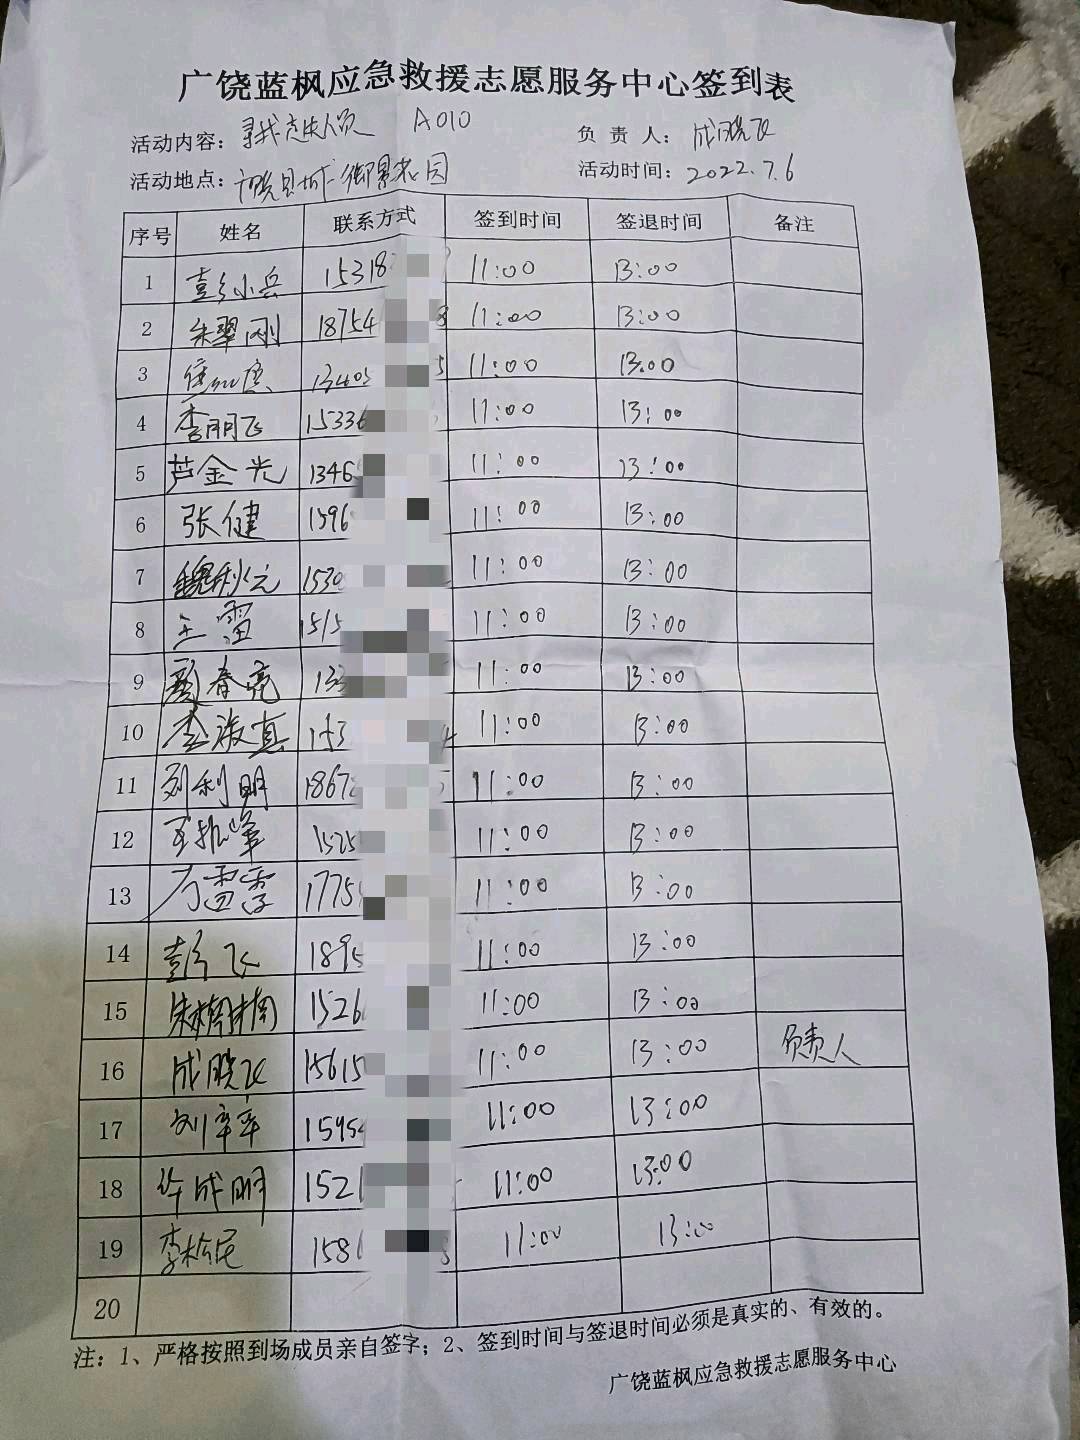 广饶蓝枫应急救援志愿服务中心签到表
活动内容：寻找走失人员 A010 负责人：成鹏飞
活动地点：县城御景花园 活动时间：2022.7.6
序号 姓名 联系方式 签到时间 签退时间 备注
1 彭小兵 15318 11:00 13:00
2 朱翠刚 18754 8 11:00 13:00
3 13405 5 11:00 13:00
4 李朋飞 15336 11:00 13:00
5 芦金光 1346 11:00 13:00
6 张健 1596 11:00 13:00
7 魏秋元 1530 11:00 13:00
8 王雷 1515 11:00 13:00
9 颜春亮 133 11:00 13:00
10 李淑真 153 4 11:00 13:00
11 刘利明 1867 5 11:00 13:00
12 王振峰 1525 11:00 13:00
13 1775 11:00 13:00
14 彭飞 1895 11:00 13:00
15 朱楠楠 1526 11:00 13:00
16 成鹏飞 15615 11:00 13:00 负责人
17 刘辛辛 1595 11:00 13:00
18 成明 1521 11:00 13:00
19 李松民 1586 8 11:00 13:00
20
注：1、严格按照到场成员亲自签字；2、签到时间与签退时间必须是真实的、有效的。
广饶蓝枫应急救援志愿服务中心